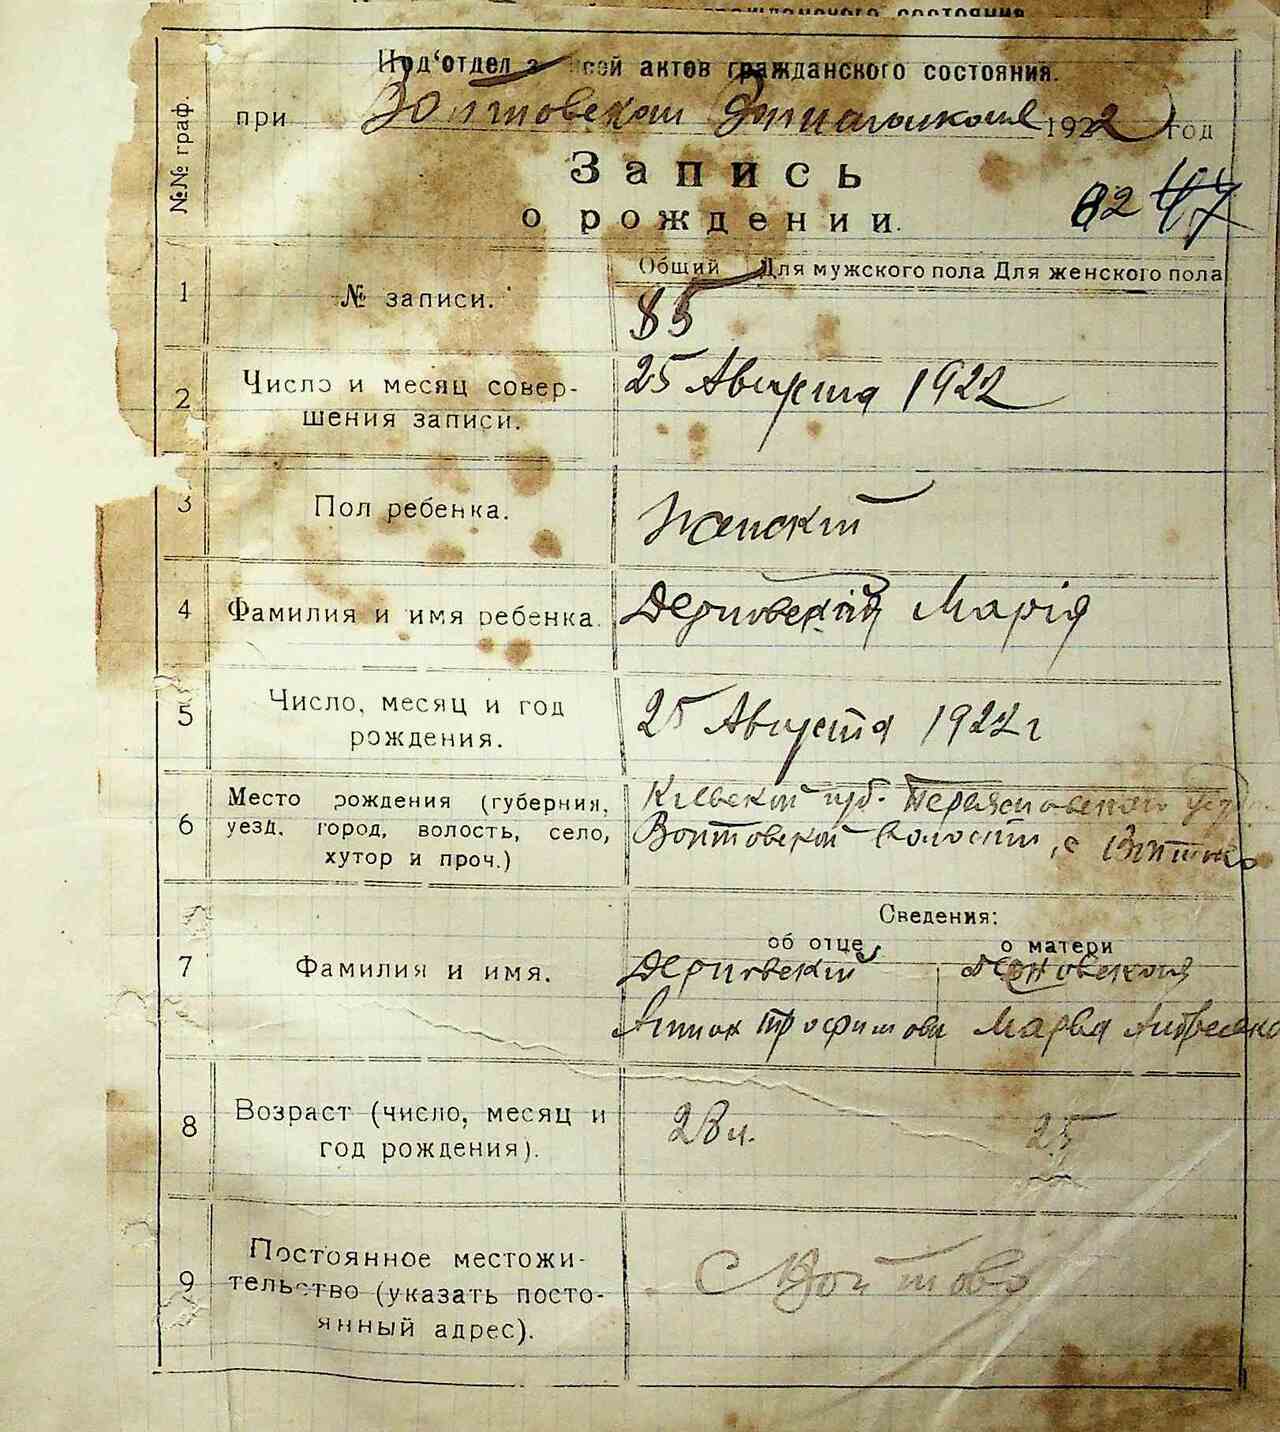 гражданского состояния
Под'отдел з исей актов гражданского состояния.
№№ граф.
при Войтовском 1922 год
Запись
о рождении.
82 47
Общий Для мужского пола Для женского пола
1 № записи. 85
2 Число и месяц совер-
шения записи.
25 Августа 1922
3 Пол ребенка. Женский
4 Фамилия и имя ребенка. Марія
5 Число, месяц и год
рождения.
25 Августа 1922 г
6 Место рождения (губерния,
уезд, город, волость, село,
хутор и проч.)
Киевской губ. Переяславского уезд
Войтовской волости, с Войтово
Сведения:
об отце о матери
7 Фамилия и имя. Дерновский Дерновская
Трофимови Марья Андреевна
8 Возраст (число, месяц и
год рождения).
28 л. 25
9 Постоянное местожи-
тельство (указать посто-
янный адрес).
С Войтово